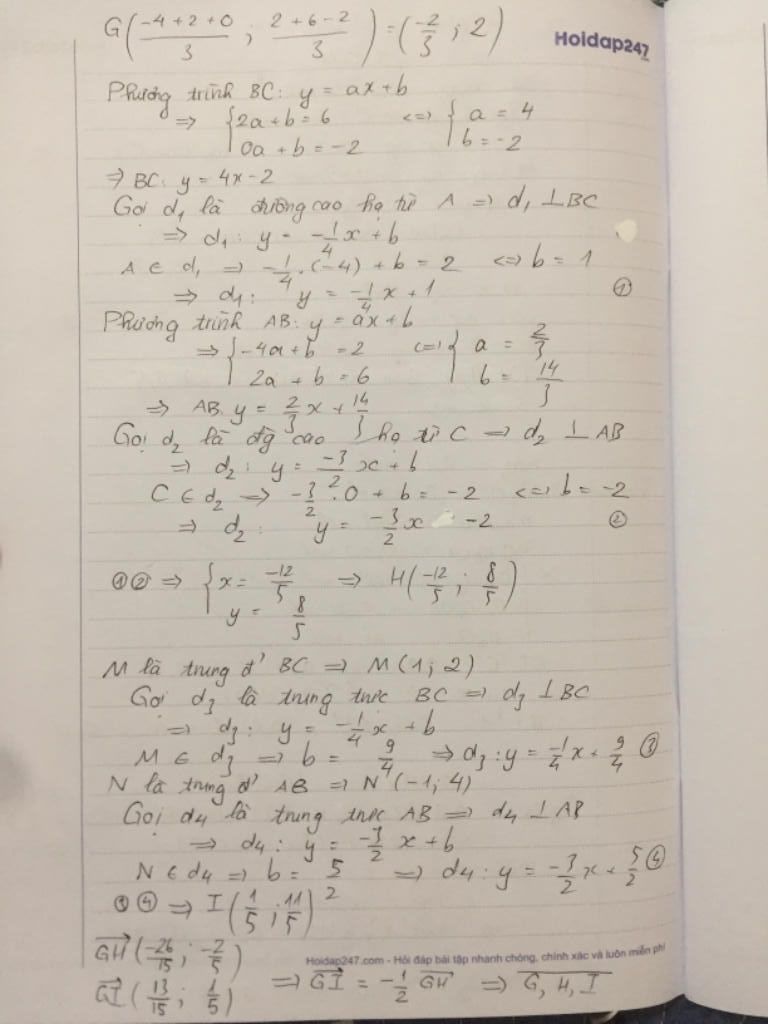 G(\frac{-4+2+0}{3} ; \frac{2+6-2}{3}) = (\frac{-2}{3} ; 2)
Hoidap247
Phương trình BC: y = ax+b
=> { 2a+b = 6 <=> { a = 4
0a+b = -2 b = -2
=> BC: y = 4x-2
Gọi d₁ là đường cao hạ từ A => d₁ ⊥ BC
=> d₁: y = -\frac{1}{4}x + b
A ∈ d₁ => -\frac{1}{4}.(-4) + b = 2 <=> b = 1
=> d₁: y = -\frac{1}{4}x + 1 ①
Phương trình AB: y = ax+b
=> { -4a+b = 2 <=> { a = \frac{2}{3}
2a + b = 6 b = \frac{14}{3}
=> AB: y = \frac{2}{3}x + \frac{14}{3}
Gọi d₂ là đg cao hạ từ C => d₂ ⊥ AB
=> d₂: y = \frac{-3}{2}x + b
C ∈ d₂ => -\frac{3}{2}.0 + b = -2 <=> b = -2
=> d₂: y = \frac{-3}{2}x -2 ②
①② => { x = \frac{-12}{5} => H(\frac{-12}{5} ; \frac{8}{5})
y = \frac{8}{5}
M là trung đ' BC => M(1; 2)
Gọi d₃ là trung trực BC => d₃ ⊥ BC
=> d₃: y = -\frac{1}{4}x + b
M ∈ d₃ => b = \frac{9}{4} => d₃: y = -\frac{1}{4}x + \frac{9}{4} ③
N là trung đ' AB => N(-1; 4)
Gọi d4 là trung trực AB => d4 ⊥ AB
=> d4: y = \frac{-3}{2}x + b
N ∈ d4 => b = \frac{5}{2} => d4: y = -\frac{3}{2}x + \frac{5}{2} ④
③④ => I(\frac{1}{5} ; \frac{11}{5})
\overrightarrow{GH}(\frac{-26}{15} ; \frac{-2}{5})
Hoidap247.com - Hỏi đáp bài tập nhanh chóng, chính xác và luôn miễn phí
\overrightarrow{GI}(\frac{13}{15} ; \frac{1}{5}) => \overrightarrow{GI} = -\frac{1}{2}\overrightarrow{GH} => \overline{G, H, I}